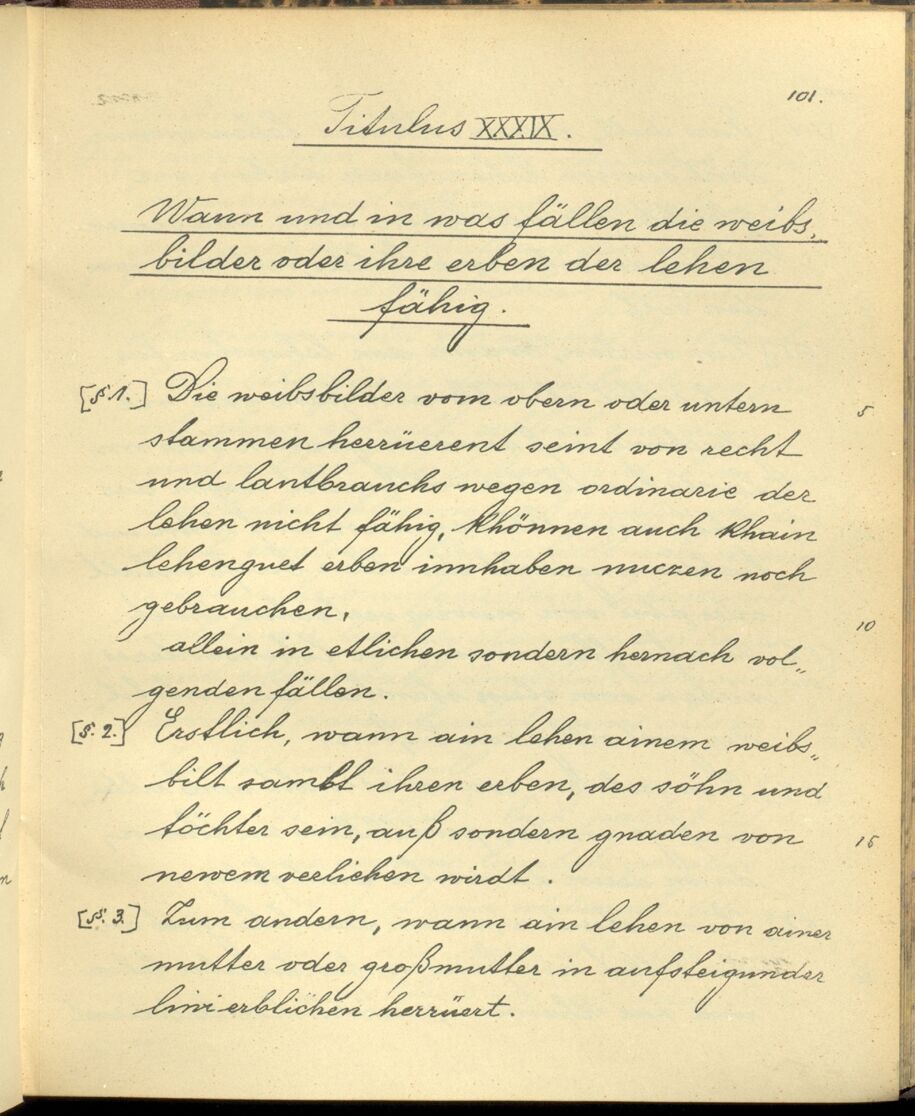 101.
Titulus XXXIX.
Wann und in was fällen die weibs„
bilder oder ihre erben der lehen
fähig.
[§ 1.] Die weibsbilder vom obern oder untern
5
stammen herrüerent seint von recht
und lantbrauchs wegen ordinarie der
lehen nicht fähig, khönnen auch khain
lehenguet erben innhaben nuczen noch
gebrauchen,
10
allein in etlichen sondern hernach vol„
genden fällen.
[§. 2.] Erstlich, wann ain lehen ainem weibs„
bilt sambt ihren erben, des söhn und
töchter sein, auß sondern gnaden von
15
newem verliehen wirdt.
[§. 3.] Zum andern, wann ain lehen von ainer
mutter oder großmutter in aufsteigunder
lini erblichen herrüert.